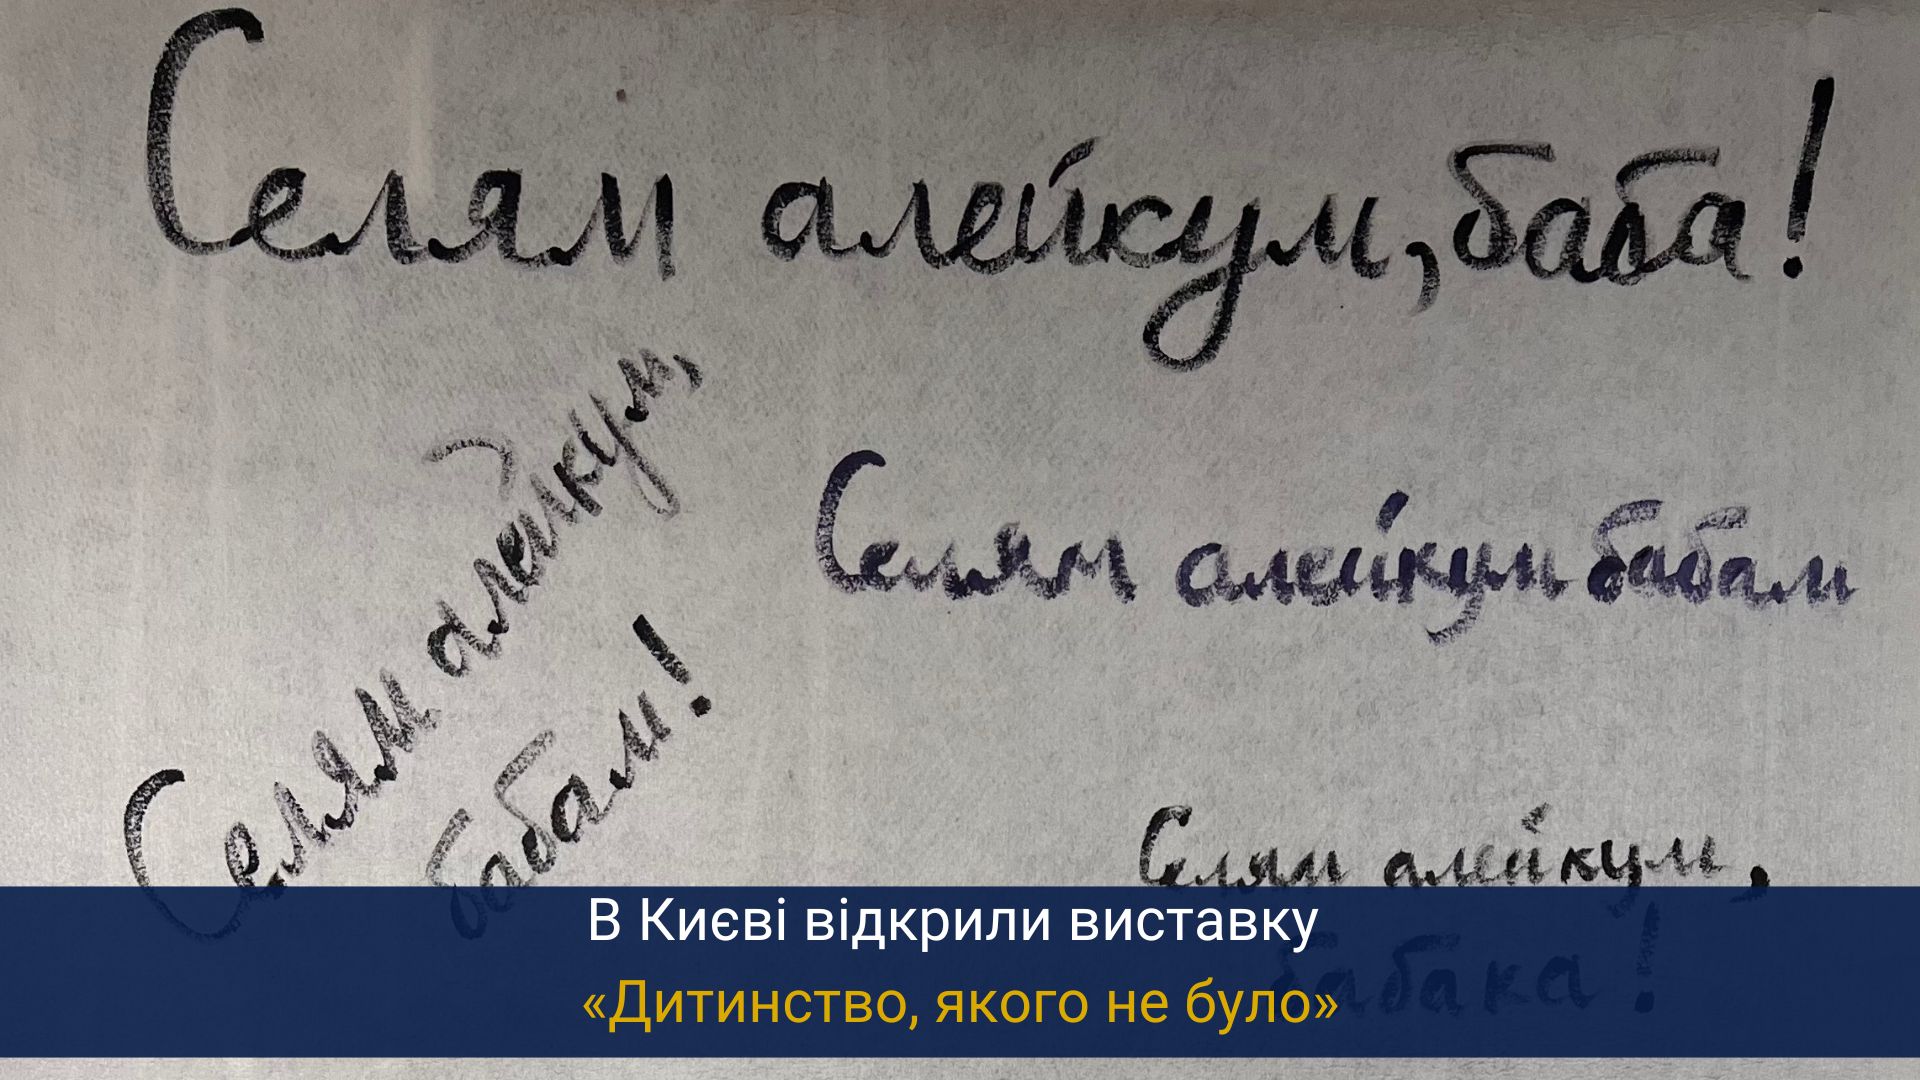 Селям алейкум, баба!
Селям алейкум,
бабам!
Селям алейкум бабам
Селям алейкум,
бабака!
В Києві відкрили виставку
«Дитинство, якого не було»